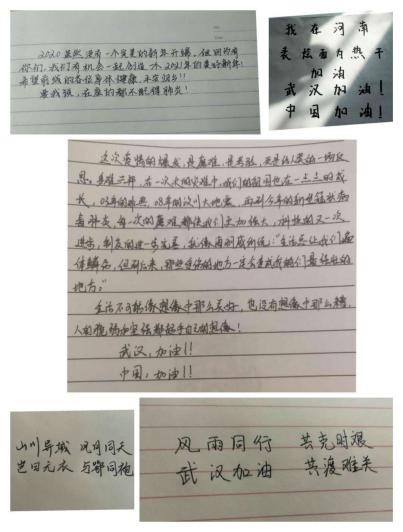 2020虽然没有一个完美的新年开端，但因为有
你们，我们有机会一起创造
2021年的美好新年！
希望前线的各位身体健康，平安归乡！！
要我说，在座的都不能得肺炎！
我在河南
表括面为热干
加油
武汉加油！
中国加油！
这次疫情的爆发，是磨难，是考验，更是给人类的一场反
思。多难兴邦，在一次次的灾难中，我们的祖国也在一点点的成
长，03年的非典，08年的汶川大地震，再到今年的新型冠状病
毒肺炎，每一次的磨难都使我们更加强大，科技的又一次
进步，制度的进一步完善，就像海明威所说：“生活总让我们遍
体鳞伤，但到后来，那些受伤的地方一定会变成我们最强壮的
地方。”
生活不可能像想像中那么美好，也没有想像中那么糟，
人的脆弱和坚强都超乎自己的想像！
武汉，加油！！
中国，加油！！
山川异域 风月同天
岂曰无衣 与鄂同袍
风雨同行 共克时艰
武汉加油 共渡难关